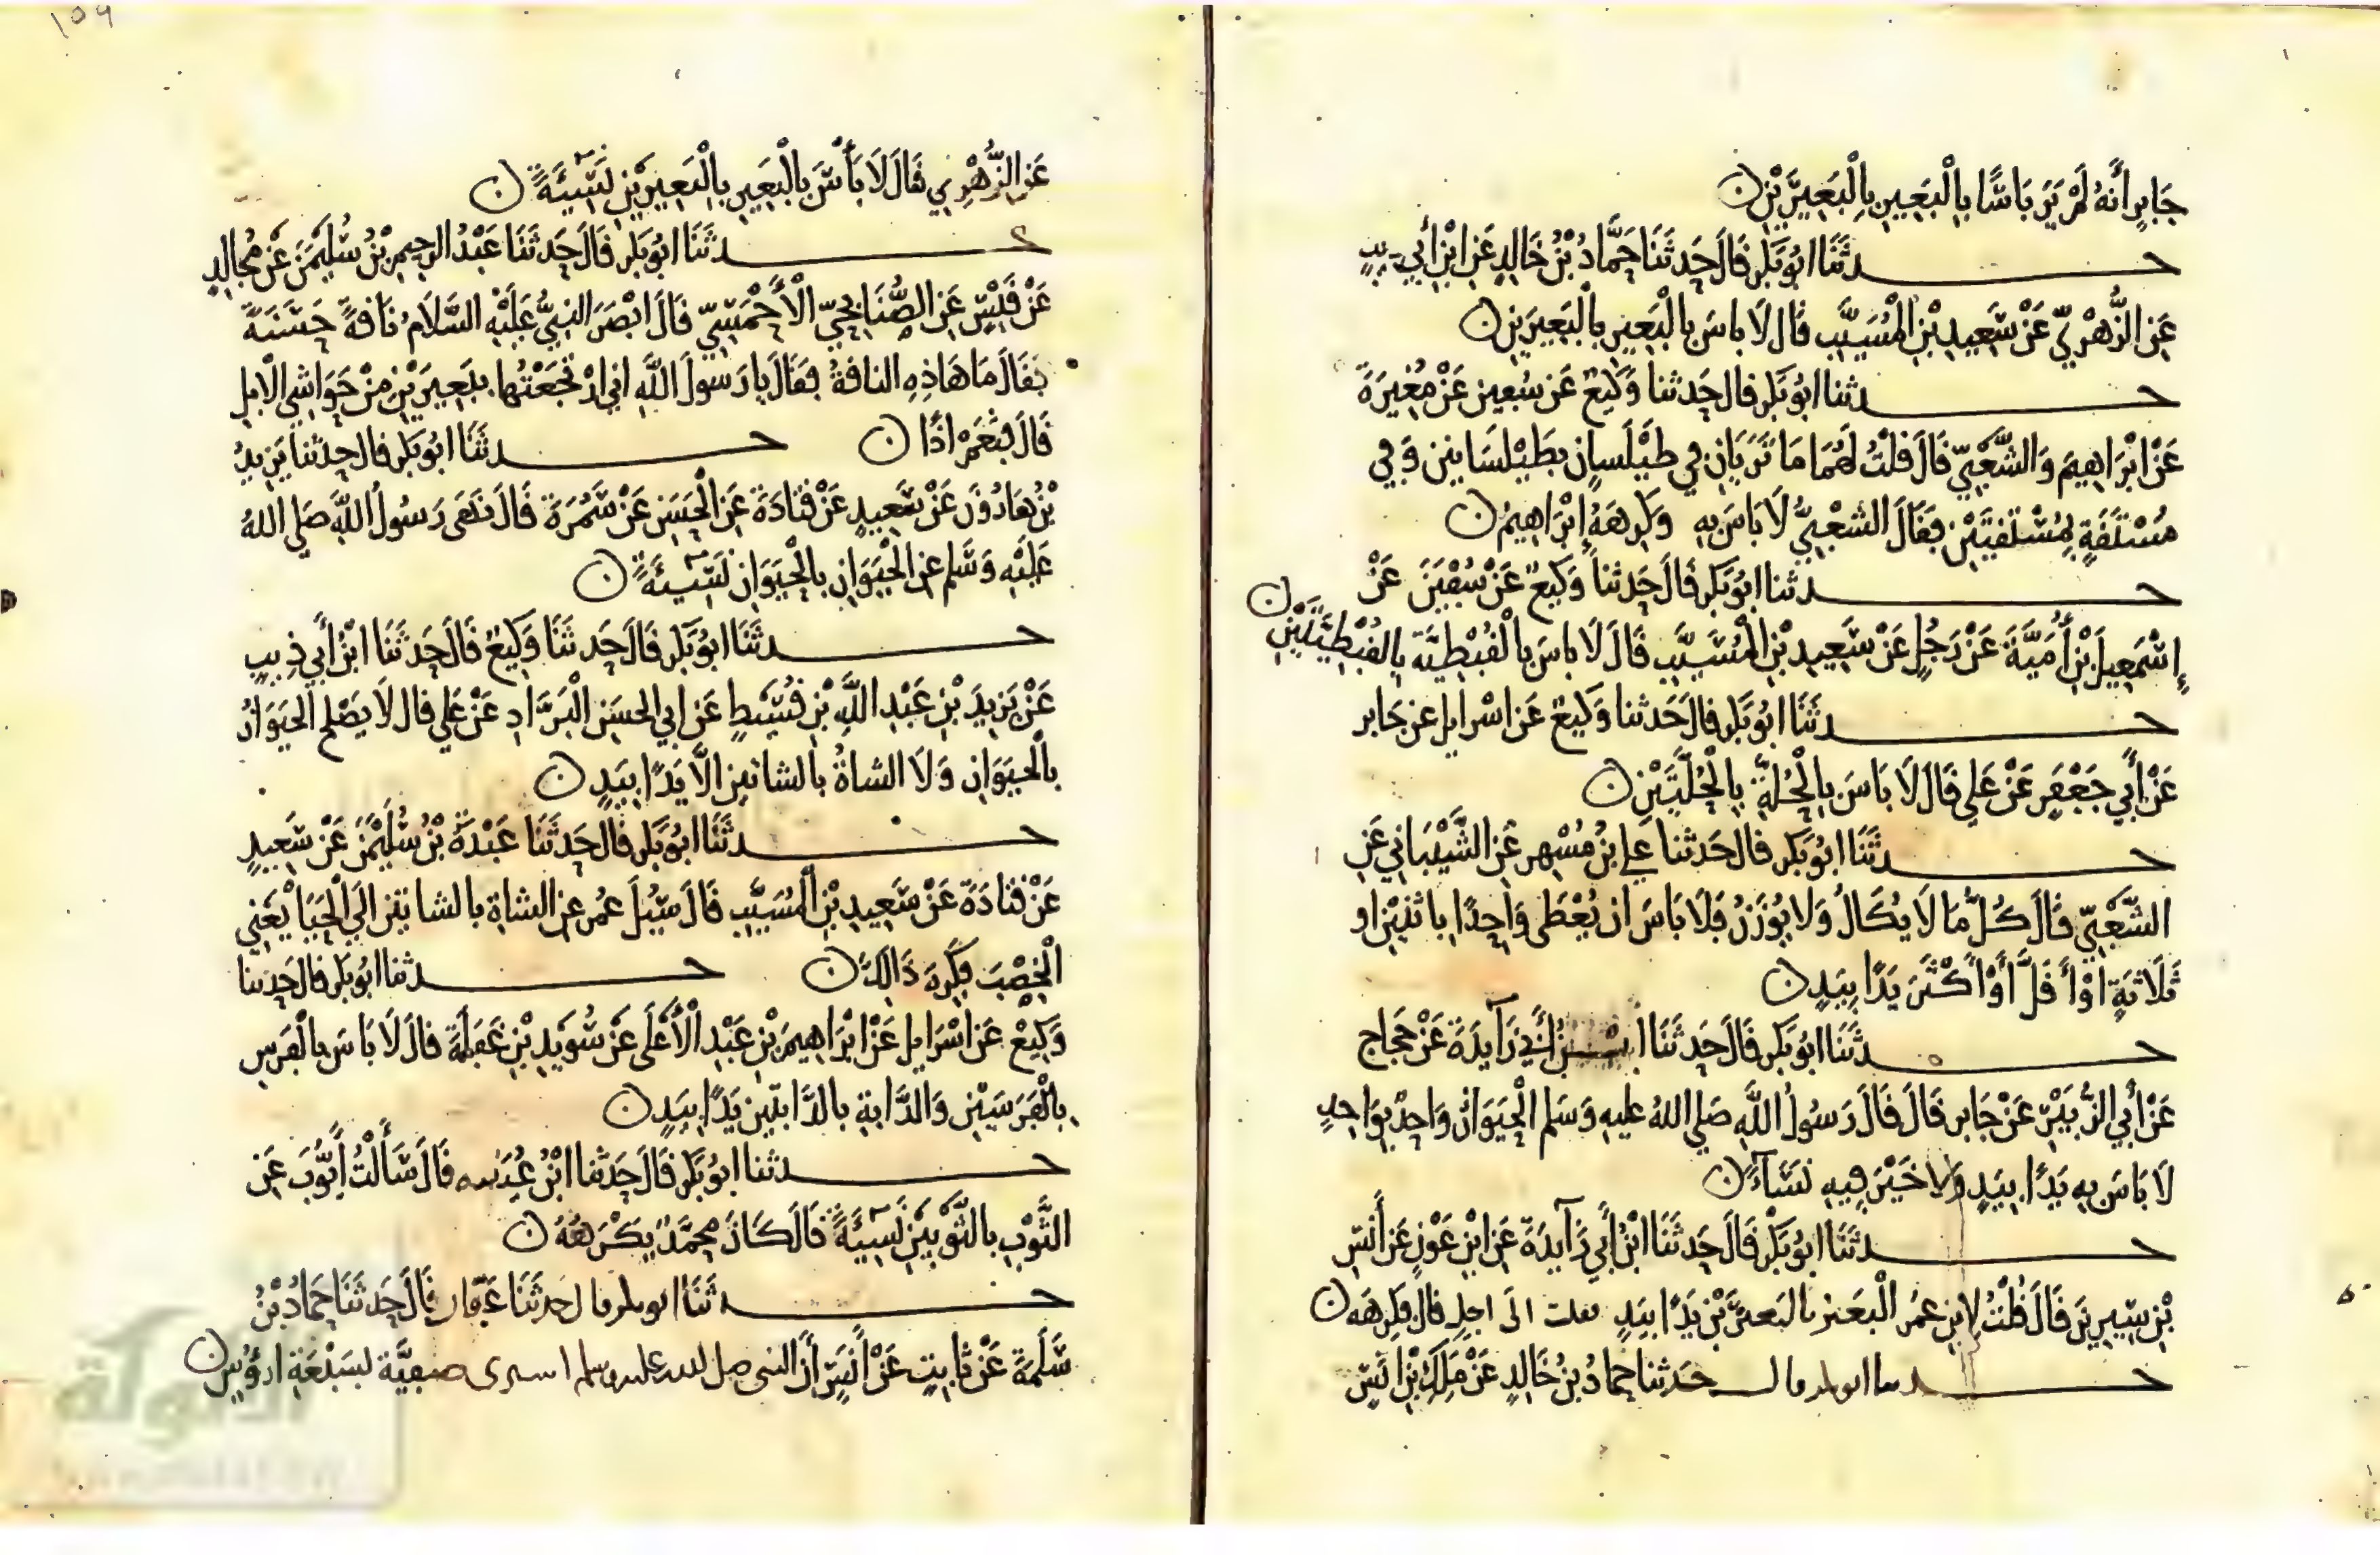 جَابِرٍ أَنَّهُ لَمْ يَرَ بَاسًا بِالْبَعِيرِ بِالْبَعِيرَيْنِ ن
حدثَنَا ابُو بَكْرٍ قَالَ حَدثَنَا حَمَّادُ بْنُ خَالِدٍ عَنِ ابْنِ أَبِي ذيبٍ
عَنِ الزُّهْرِيِّ عَنْ سَعِيدِ بْنِ الْمُسَيَّبِ قَالَ لَا باسَ بِالْبَعِيرِ بِالْبَعِيرَيْنِ ن
حدثنا ابُو بَكْرٍ قال حَدثنا وَكِيعٌ عَن سُفين عَنْ مُغِيرَةَ
عَنْ ابْرَاهِيمَ وَالشَّعْبِيِّ قَالَ قلْتُ لَهُمَا مَا تَرَيَانِ فِي طَيْلَسانٍ بطَيْلَسَانِينِ وَفِي
مُسْتَقَةٍ بِمُسْتَقَتَيْنِ فَقَالَ الشعْبِيُّ لَا بَاسَ بِهِ وَكَرِهَهُ إِبْرَاهِيمُ ن
حدثنا ابُو بَكْرٍ قَالَ حَدثنا وَكِيعٌ عَنْ سُفْيَنَ عَنْ
إِسْمَعِيلَ بْنِ أُمَيَّةَ عَنْ رَجُلٍ عَنْ سَعِيدِ بْنِ الْمُسَيَّبِ قَالَ لَا باسَ بِالْقُبْطِيَّة بِالقُبْطِيَّتَيْنِ ن
حدثَنَا ابُو بَكْرٍ قال حَدثنا وَكِيعٌ عَن اسْرايل عن جَابر
عَنْ أَبِي جَعْفَرٍ عَنْ عَلِي قَالَ لَا بَاسَ بِالْحُلَّةِ بِالْحُلَّتَيْنِ ن
حدثَنَا ابُو بَكر قال حَدثنا علي بنُ مُسْهِر عَنِ الشَّيْبَانِي عَنِ
الشَّعْبِيِّ قَالَ كُلُّ مَا لَا يُكَالُ وَلا يُوزَنُ فَلَا بَاسَ ان يُعْطَى وَاحِدًا باثنيْنِ او
ثَلَاثَةٍ اوْ أَقَلَّ أَوْ أَكْثَرَ يَدًا بِيَدٍ ن
حدثَنَا ابُو بَكْرٍ قَالَ حَدثَنَا ابْنُ أَبِي زَآيِدَةَ عَنْ حَجاج
عَنْ أَبِي الزُّبَيْرِ عَنْ جَابر قَالَ قَالَ رَسُولُ اللَّهِ صَلى اللهُ عليهِ وَسَلم الْحَيَوَانُ وَاحِدٌ بِوَاحِدٍ
لَا بَاسَ بِهِ يَدًا بِيَدٍ وَلَا خَيْرَ فِيهِ نَسَآءً ن
حدثَنَا ابُو بَكْرٍ قَالَ حَدثَنَا ابْنُ أَبِي زَآيِدَةَ عَنِ ابْنِ عَوْنٍ عَنْ أَنَسِ
بْنِ سِيرِينَ قَالَ قُلْتُ لِابْنِ عُمَرَ الْبَعير بالبَعيرَيْنِ يَدًا بِيَدٍ فقلت الَى اجلٍ قال فكَرِهَه ن
حدثنا ابو بكر قال حَدثنا حمادُ بنُ خَالِدٍ عَنْ مَلِكِ بْنِ انَسٍ
عَنِ الزُّهْرِي قَالَ لَا بَأْسَ بِالْبَعِيرِ بِالْبَعِيرَيْنِ نَسِيئَةً ن
حدثَنَا ابُو بَكْرٍ قَالَ حَدثَنَا عَبْدُ الرحِيمِ بْنُ سُلَيْمَنَ عَنْ مُجَالِدٍ
عَنْ قَيْسٍ عَنِ الصُّنَابِحِيِّ الْأَحْمَسِيِّ قَالَ ابْصَرَ النبِيُّ عَلَيْهِ السَّلَامُ نَاقةً حَسَنَةً
فَقَالَ مَا هَاذِهِ الناقةُ فَقَالَ يا رَسولَ اللَّهِ اني ارْتَجَعْتُها بِبَعِيرَيْنِ مِنْ حَوَاشِي الْابِلِ
قَالَ فنَعَمْ اذًا ن حدثَنَا ابُو بَكْرٍ قال حدثنا يَزيدُ
بْنُ هَارُونَ عَنْ سَعِيدٍ عَنْ قَتَادَةَ عَنِ الْحَسَنِ عَنْ سَمُرَةَ قَالَ نَهَى رَسُولُ اللَّهِ صَلى اللهُ
عَلَيْهِ وَسَلم عن الْحَيَوَانِ بِالْحَيَوَانِ نَسِيئَةً ن
حدثَنَا ابُو بَكْرٍ قَالَ حَدثَنَا وَكِيعٌ قَالَ حَدثَنَا ابْنُ أَبِي ذِيبٍ
عَنْ يَزِيدَ بْنِ عَبْدِ اللَّهِ بْنِ قُسَيْطٍ عَن ابي الحسَنِ الْبَرَّادِ عَنْ عَلي قال لَا يَصْلح الحَيَوَانُ
بِالْحَيَوَانِ وَلَا الشاةُ بالشاتينِ الَّا يَدًا بِيَدٍ ن
حدثَنَا ابُو بَكْرٍ قال حَدثَنَا عَبْدَةُ بْنُ سُلَيْمَنَ عَنْ سَعِيدٍ
عَنْ قتادَةَ عَنْ سَعِيدِ بْنِ الْمُسَيَّبِ قَالَ سُيِلَ عمُر عنِ الشاةِ بالشاتينِ الَى الْحَيَا يَعْنِي
الْخِصْبَ فكَرِهَ ذَالِكَ ن حدثنا ابُو بَكر قالَ حَدثنا
وَكِيعٌ عَن اسْرَايل عَنْ ابْرَاهِيمَ بْنِ عَبْدِ الْأَعْلَى عَنْ سُوَيْدِ بْنِ غَفَلَةَ قالَ لَا بَاسَ بالْفَرَسِ
بِالْفَرَسَيْنِ وَالدَّابةِ بالدَّابتَيْنِ يَدًا بِيَدٍ ن
حدثنا ابُو بَكْرٍ قَالَ حَدثنا ابْنُ عُيَيْنه قَالَ سَأَلْتُ أَيُّوبَ عَنِ
الثَّوْبِ بِالثَّوْبَيْنِ نَسِيئَةً قَالَ كَانَ مُحَمَّدٌ يَكْرَهُهُ ن
حدثَنَا ابو بكر قال حَدثَنَا عَفَّان قَالَ حَدثَنَا حَمادُ بْنُ
سَلَمَةَ عَنْ ثَابِتٍ عَنْ أَنَسٍ أَن النبى صلى الله عليه وسلم اشترى صَفِيَّة بسَبْعَةِ ارؤُسٍ ن